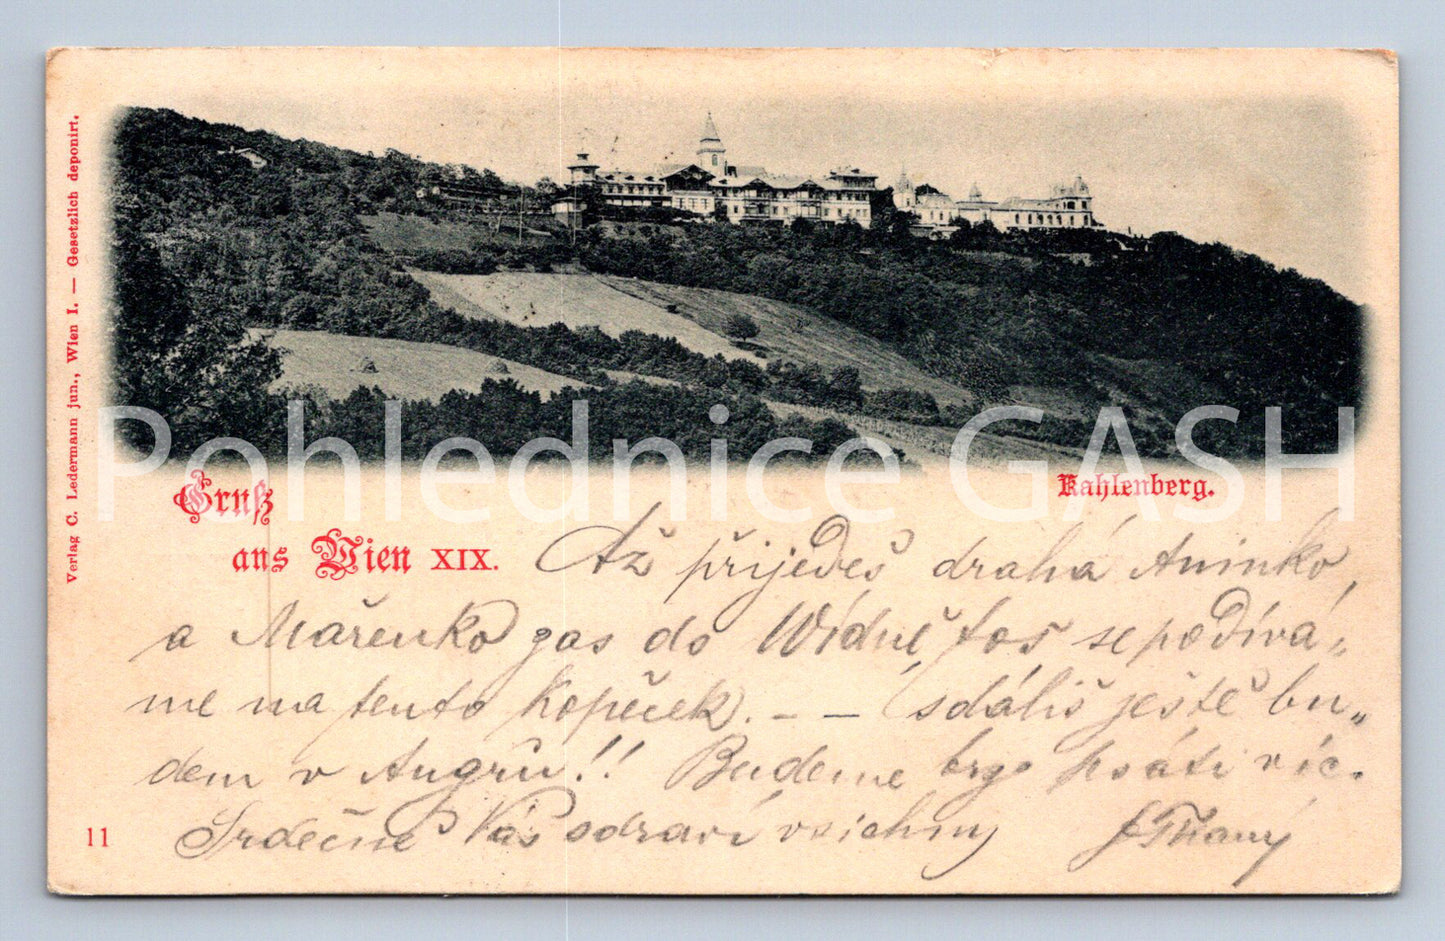 Verlag C. Ledermann jun., Wien I. — Gesetzlich deponirt.
Pohlednice GASH
Kahlenberg.
Gruß
aus Wien XIX.
Až přijedeš drahá Aninko,
a Mařenko zas do Vídně tos se podívá„
me na tento kopeček. – – ještě bu„
dem v !! Budeme víc.
Srdečně Vás zdraví všichny
11